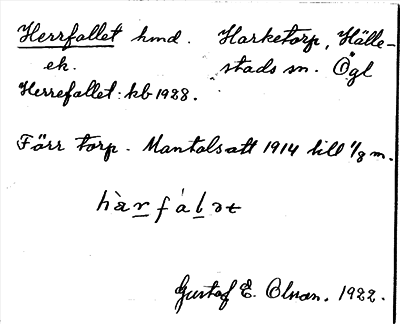 Herrfallet hmd. Harketorp, Hälle-
ek. stads sn. Ögl
Herrefallet: kb 1928.
Förr torp. Mantalsatt 1914 till 1/8 m.
hàrfálət
Gustaf E. Olsson. 1922.